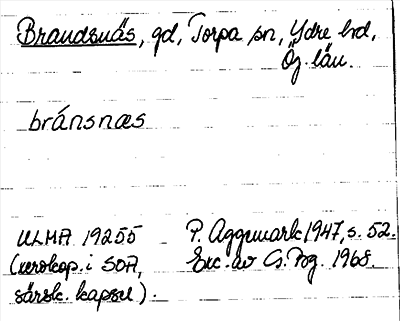 Brandsnäs, gd, Torpa sn, Ydre hd,
Ög. län.
bránsnæs
ULMA 19255
(xerokop. i SOA,
särsk. kapsel).
P. Aggemark 1947, s. 52.
Exc. av G. Pzg. 1968.